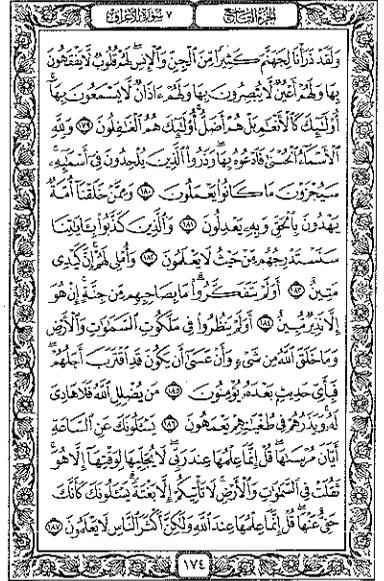 الجزء التاسع ٧ سورة الأعراف
وَلَقَدْ ذَرَأْنَا لِجَهَنَّمَ كَثِيرًا مِّنَ الْجِنِّ وَالْإِنسِ لَهُمْ قُلُوبٌ لَّا يَفْقَهُونَ
بِهَا وَلَهُمْ أَعْيُنٌ لَّا يُبْصِرُونَ بِهَا وَلَهُمْ ءَاذَانٌ لَّا يَسْمَعُونَ بِهَا
أُوْلَٰئِكَ كَالْأَنْعَٰمِ بَلْ هُمْ أَضَلُّ أُوْلَٰئِكَ هُمُ الْغَٰفِلُونَ ١٧٩ وَلِلَّهِ
الْأَسْمَاءُ الْحُسْنَىٰ فَادْعُوهُ بِهَا وَذَرُوا الَّذِينَ يُلْحِدُونَ فِي أَسْمَٰئِهِ
سَيُجْزَوْنَ مَا كَانُوا يَعْمَلُونَ ١٨٠ وَمِمَّنْ خَلَقْنَا أُمَّةٌ
يَهْدُونَ بِالْحَقِّ وَبِهِ يَعْدِلُونَ ١٨١ وَالَّذِينَ كَذَّبُوا بِـَٔايَٰتِنَا
سَنَسْتَدْرِجُهُم مِّنْ حَيْثُ لَا يَعْلَمُونَ ١٨٢ وَأُمْلِي لَهُمْ إِنَّ كَيْدِي
مَتِينٌ ١٨٣ أَوَلَمْ يَتَفَكَّرُوا مَا بِصَاحِبِهِم مِّن جِنَّةٍ إِنْ هُوَ
إِلَّا نَذِيرٌ مُّبِينٌ ١٨٤ أَوَلَمْ يَنظُرُوا فِي مَلَكُوتِ السَّمَٰوَٰتِ وَالْأَرْضِ
وَمَا خَلَقَ اللَّهُ مِن شَيْءٍ وَأَنْ عَسَىٰ أَن يَكُونَ قَدِ اقْتَرَبَ أَجَلُهُمْ
فَبِأَيِّ حَدِيثٍ بَعْدَهُ يُؤْمِنُونَ ١٨٥ مَن يُضْلِلِ اللَّهُ فَلَا هَادِيَ
لَهُ وَيَذَرُهُمْ فِي طُغْيَٰنِهِمْ يَعْمَهُونَ ١٨٦ يَسْـَٔلُونَكَ عَنِ السَّاعَةِ
أَيَّانَ مُرْسَىٰهَا قُلْ إِنَّمَا عِلْمُهَا عِندَ رَبِّي لَا يُجَلِّيهَا لِوَقْتِهَا إِلَّا هُوَ
ثَقُلَتْ فِي السَّمَٰوَٰتِ وَالْأَرْضِ لَا تَأْتِيكُمْ إِلَّا بَغْتَةً يَسْـَٔلُونَكَ كَأَنَّكَ
حَفِيٌّ عَنْهَا قُلْ إِنَّمَا عِلْمُهَا عِندَ اللَّهِ وَلَٰكِنَّ أَكْثَرَ النَّاسِ لَا يَعْلَمُونَ ١٨٧
١٧٤